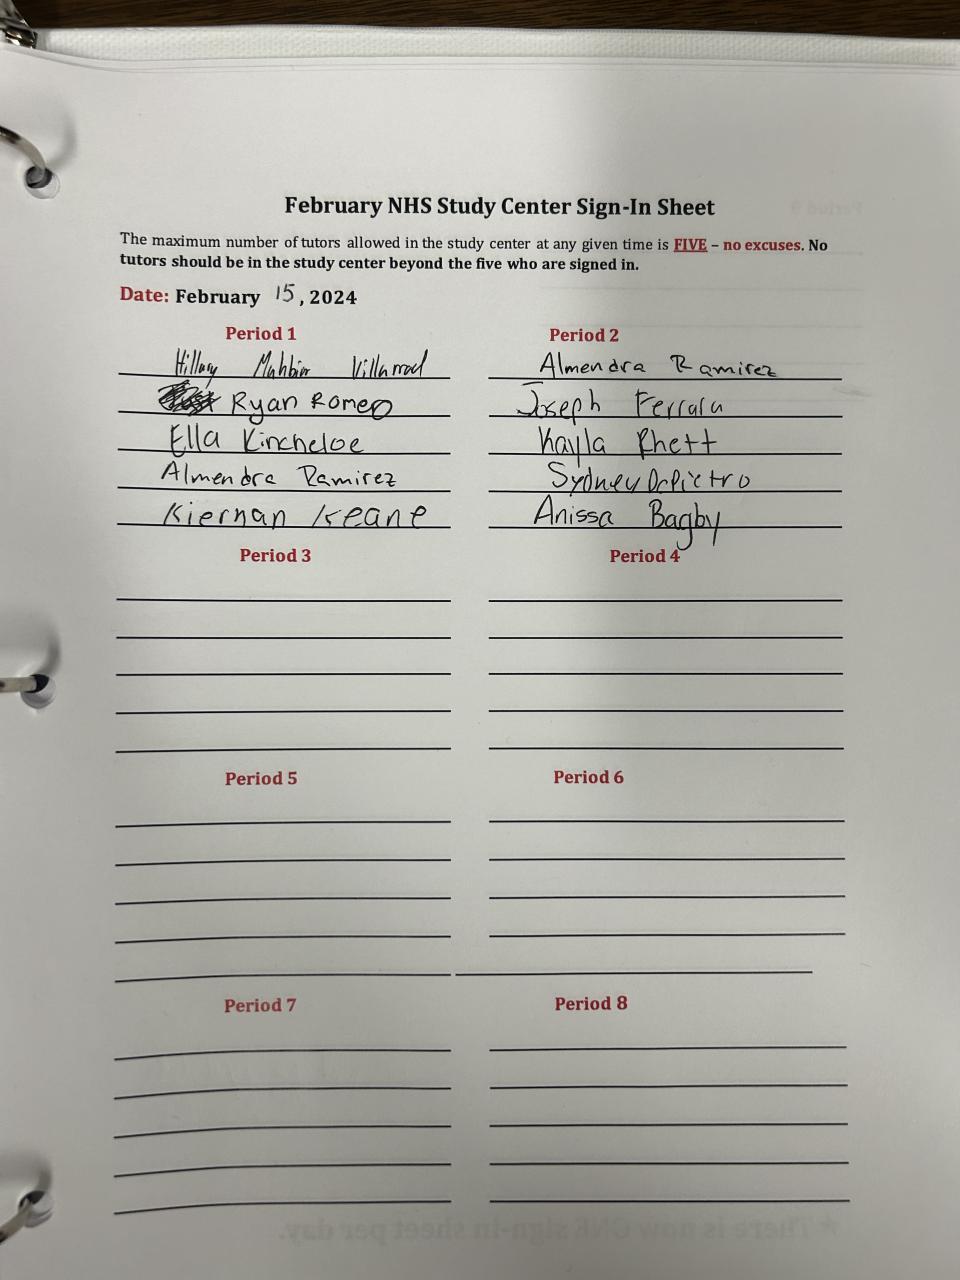 February NHS Study Center Sign-In Sheet
The maximum number of tutors allowed in the study center at any given time is FIVE – no excuses. No
tutors should be in the study center beyond the five who are signed in.
Date: February 15, 2024
Period 1
Hillary Mahbir Villarroel
Ryan Romeo
Ella Kincheloe
Almendra Ramirez
Kiernan Keane
Period 2
Almendra Ramirez
Joseph Ferrara
Kayla Rhett
Sydney DePietro
Anissa Bagby
Period 3
Period 4
Period 5
Period 6
Period 7
Period 8